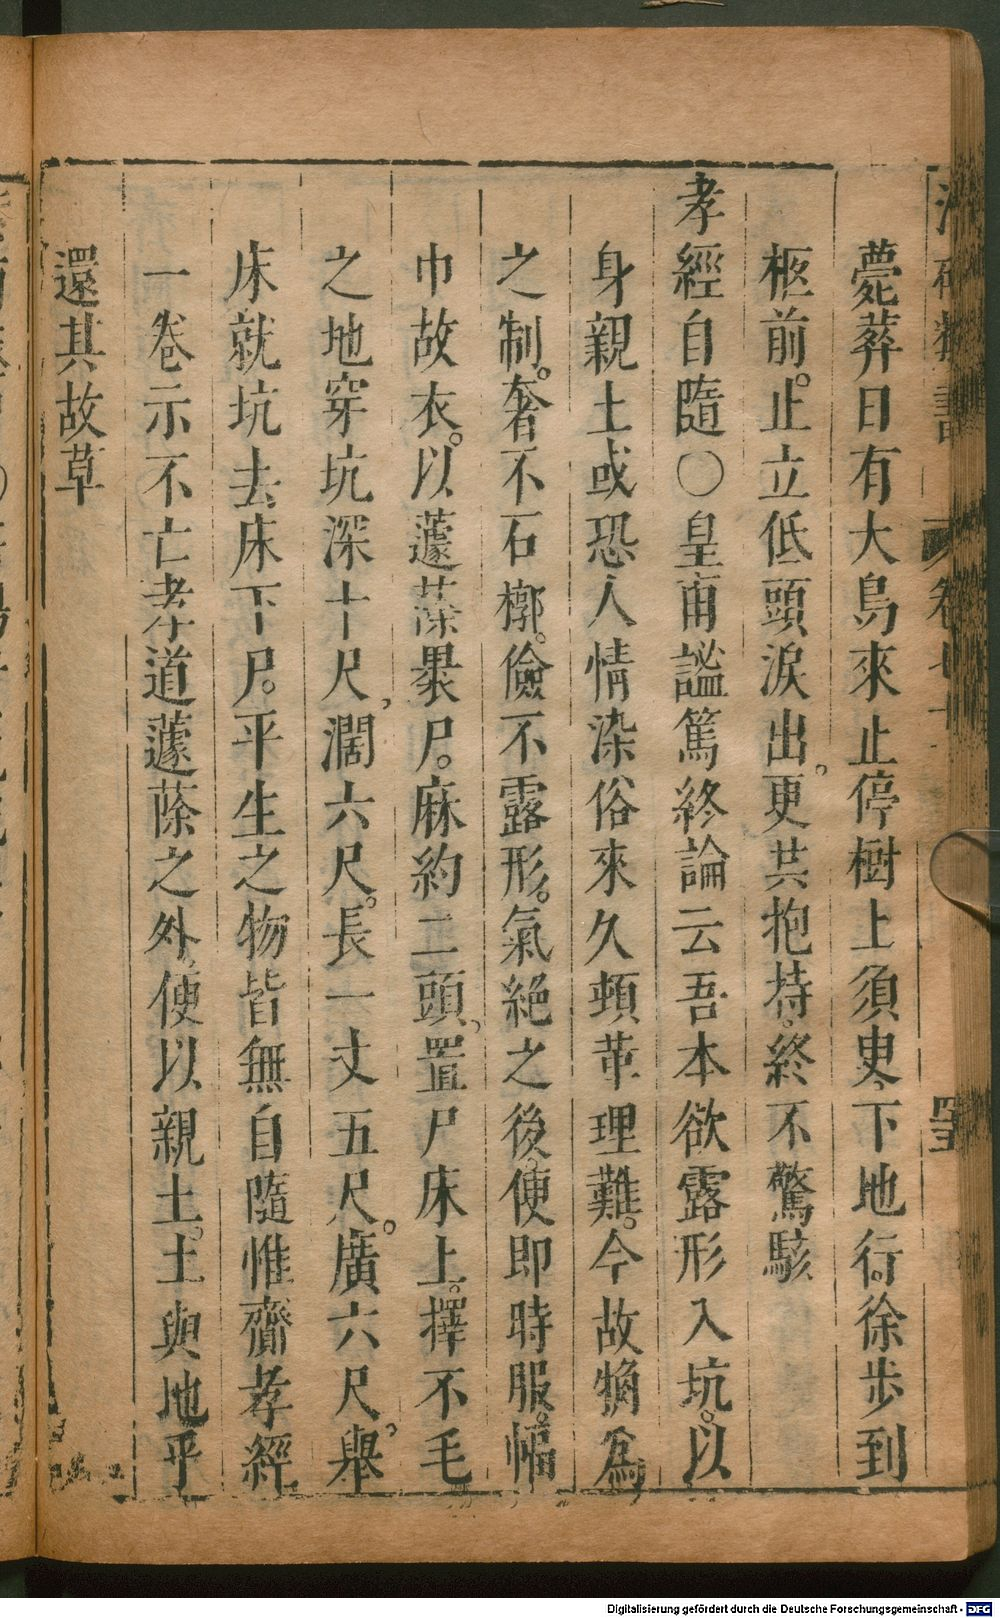 薨葬日有大鳥來止停樹上須臾下地行徐步到
柩前止立低頭淚出更共抱持終不驚駭
孝經自隨〇皇甫謐篤終論云吾本欲露形入坑以
身親土或恐人情染俗來久頓革理難今故觕爲
之制奢不石槨儉不露形氣絕之後便即時服幅
巾故衣以蘧蒢褁尸麻約二頭置尸床上擇不毛
之地穿坑深十尺濶六尺長一丈五尺廣六尺舉
床就坑去床下尸平生之物皆無自隨惟齎孝經
一卷示不亡孝道蘧蒢之外便以親土土與地平
還其故草
Digitalisierung gefördert durch die Deutsche Forschungsgemeinschaft - DFG